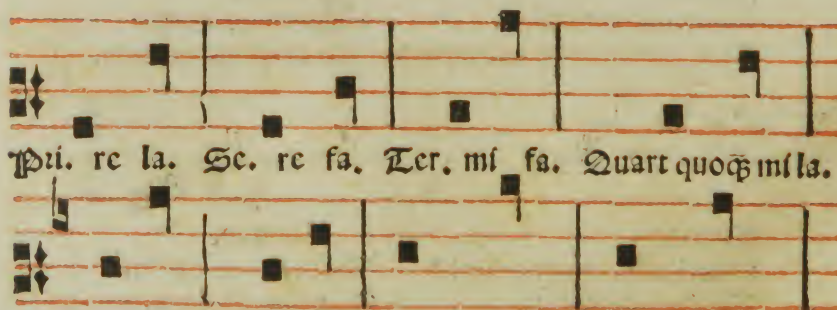 Pri. re la. Se. re fa. Ter. mi fa. Quart quoqꝫ mi la.